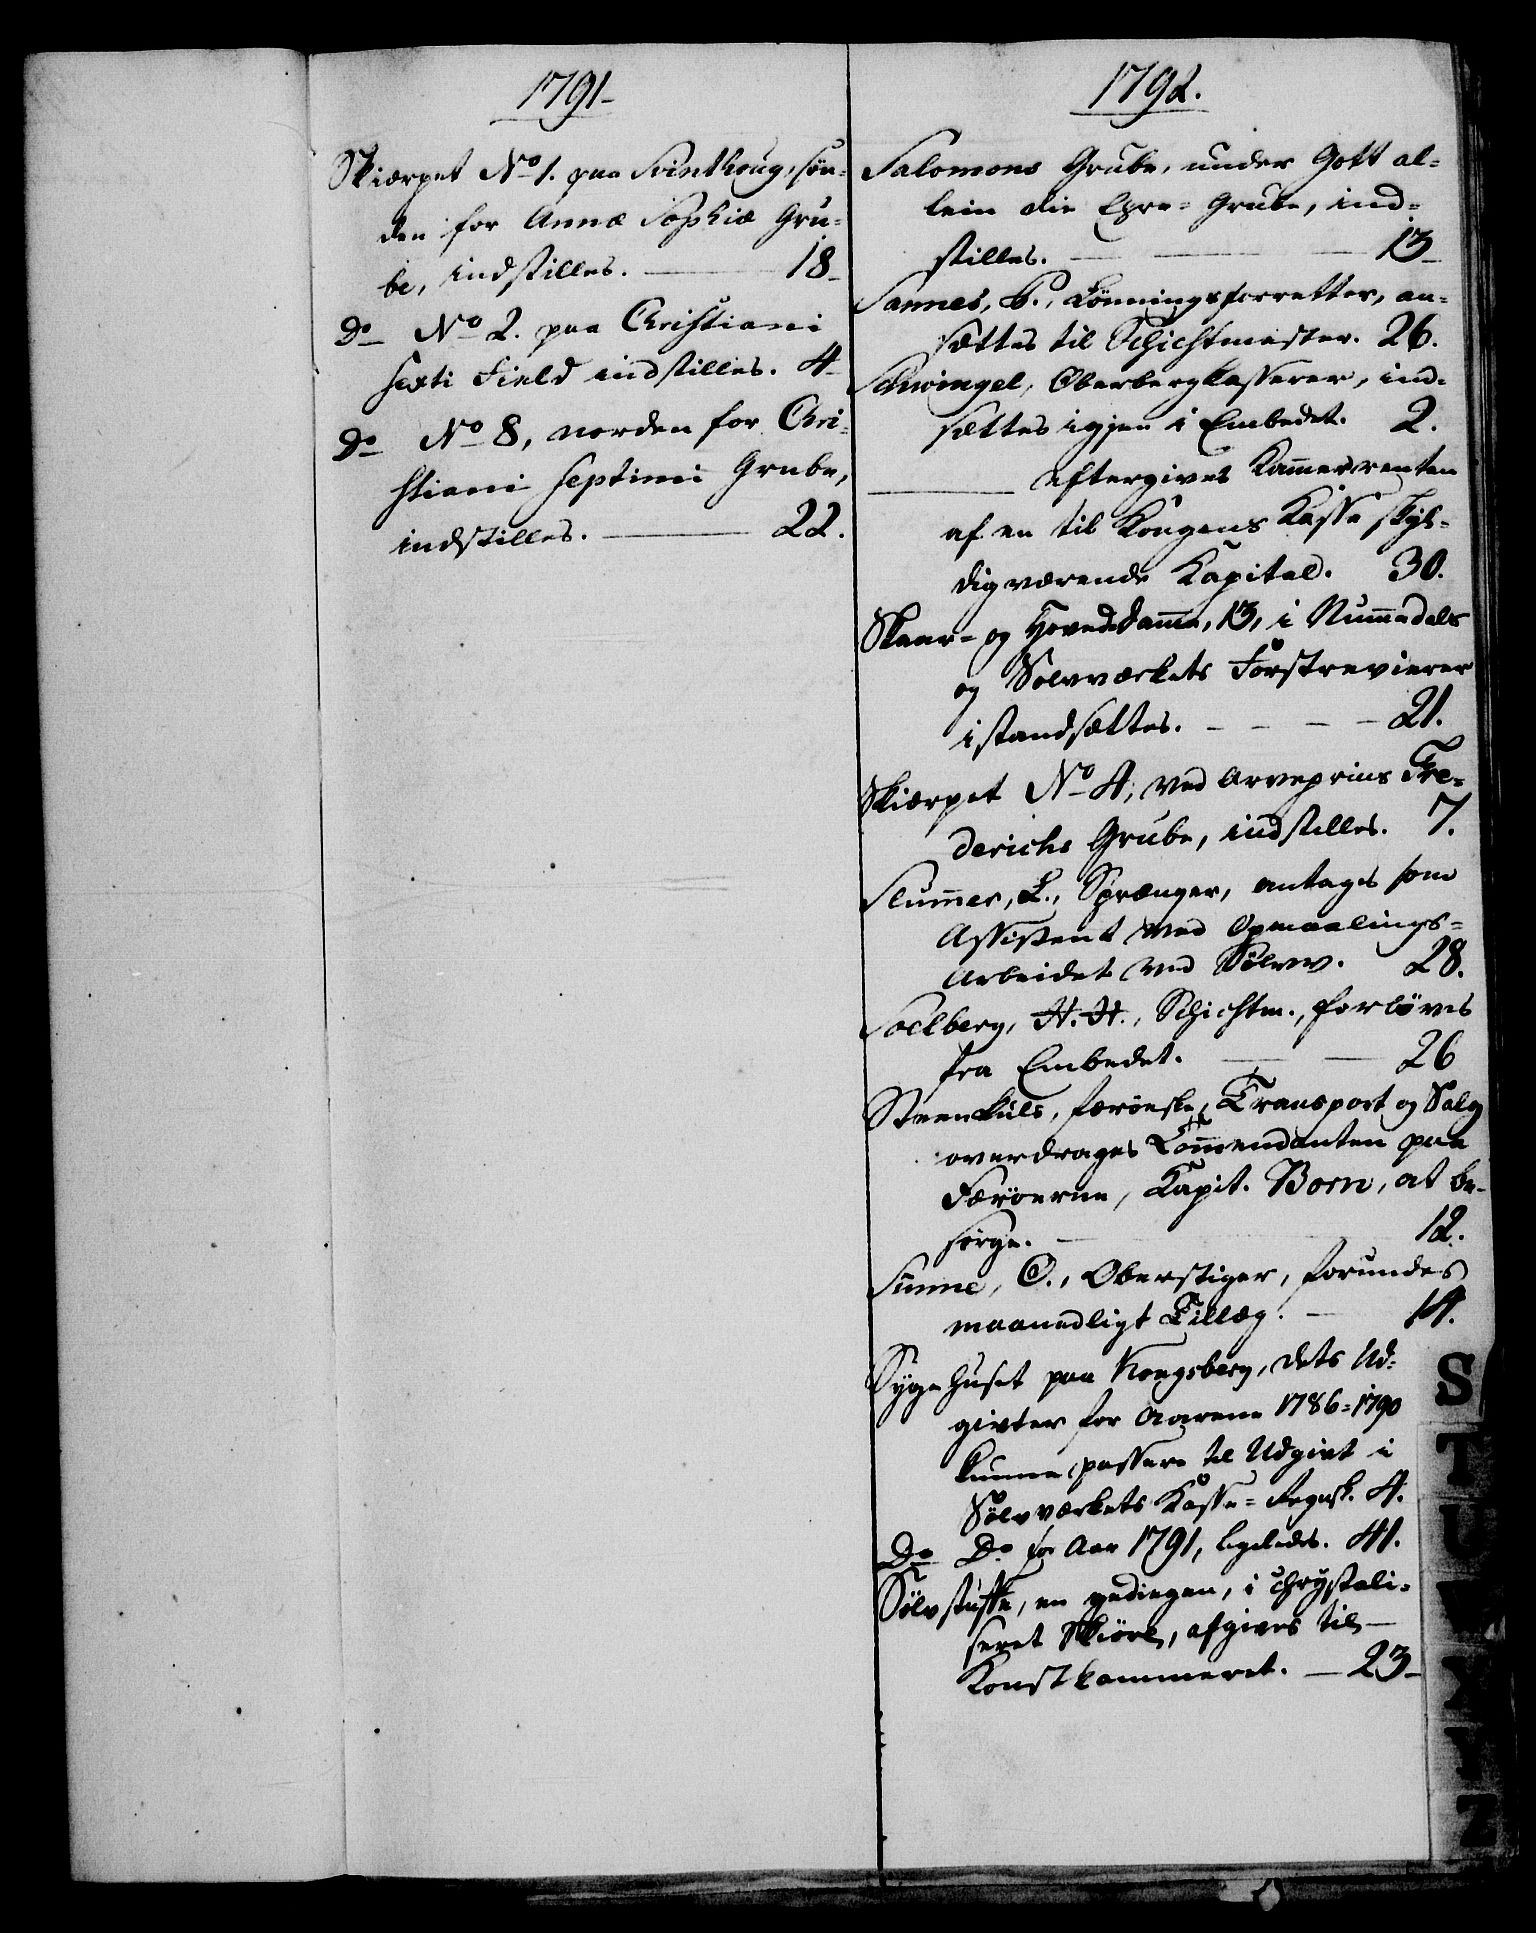 1791
Skiærpet No 1. paa Svinthoug, søn-
den for Annæ Sophiæ Gru-
be, indstilles. 18
Do No 2. paa Christiani
Sexti Field indstilles. 4
Do No 8, norden for Chri-
stiani Septimi Grube,
indstilles. 22.
1792.
Salomons Grube, under Gott al-
lein die Ehre-Grube, ind-
stilles. 13
Sannes, P., Lønningsforretter, an-
sættes til Schichtmester. 26.
Schwingel, Oberbergkasserer, ind-
sættes igjen i Embedet. 2.
eftergives Kam̄errenten
af en til Kongens Kasse skyl-
digværende Kapital. 30.
Skaar- og Hoveddam̄e, 13, i Num̄edals
og Sølvværkets Forstrevierer
istandsættes. 21.
Skiærpet No 4, ved Arveprins Fre-
derichs Grube, indstilles. 7.
Slum̄er, L., Sprænger, antages som
Assistent ved Opmaalings-
Arbeidet ved Sølvv. 28.
Soelberg, H. H., Schichtm., forløves
fra Embedet. 26
Steenkuls, færøeske, Transport og Salg
overdrages Com̄endanten paa
Færøerne, Kapit. Born, at be-
sørge. 12.
Sunne, O., Oberstiger, forundes
maanedligt Tillæg. 14.
Sygehuset paa Kongsberg, dets Ud-
givter for Aarene 1786-1790
kunne passere til Udgivt i
Sølvværkets Kasse-Regnsk. 4.
Do Do for Aar 1791, ligeledes. 41.
Sølvstuffe, en gediegen, i chrystali-
seret Skiörl, afgives til
Konstkammeret. 23
S
T
U
V
X
Y
Z